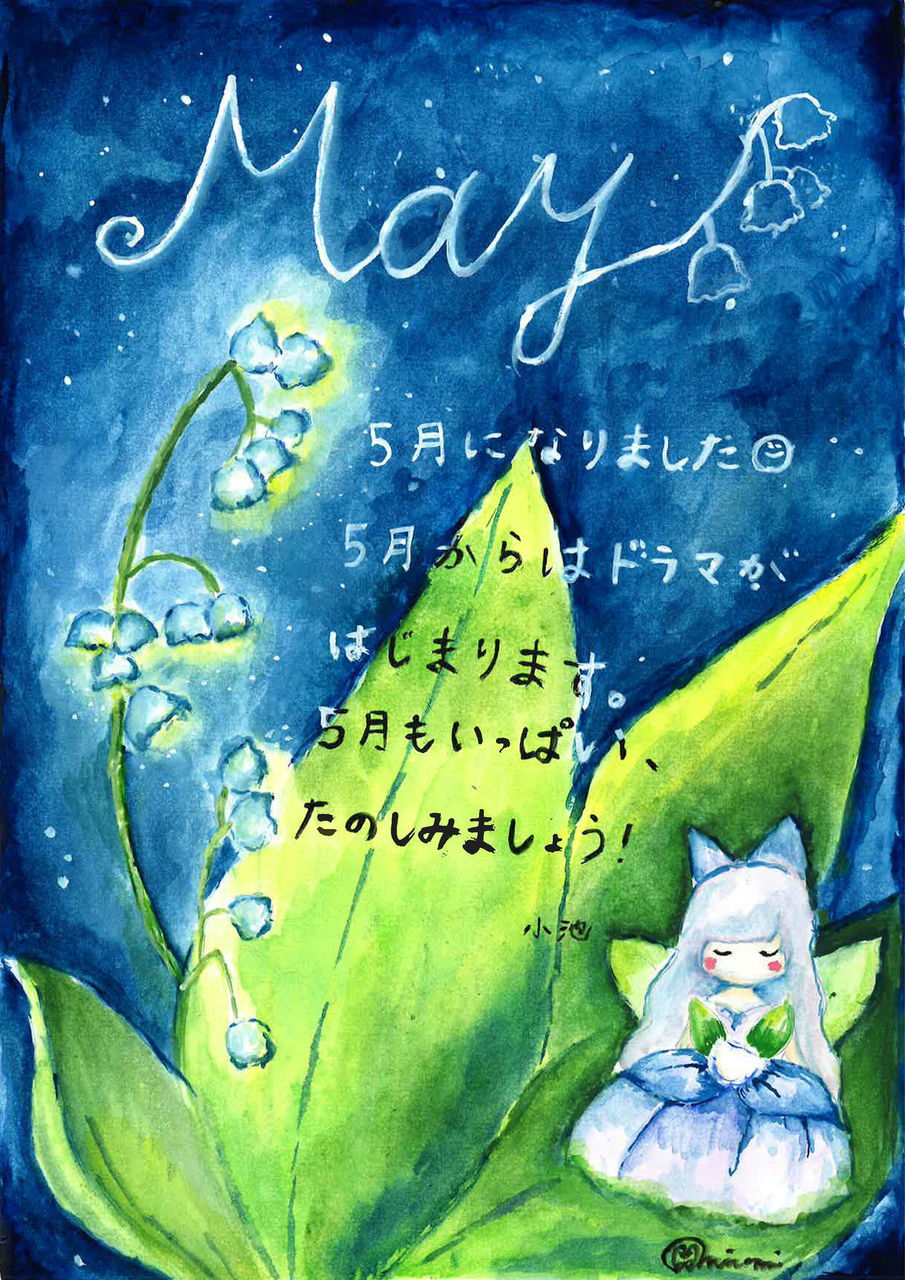 May
5月になりました☺
5月からはドラマが
はじまります。
5月もいっぱい、
たのしみましょう!
小池